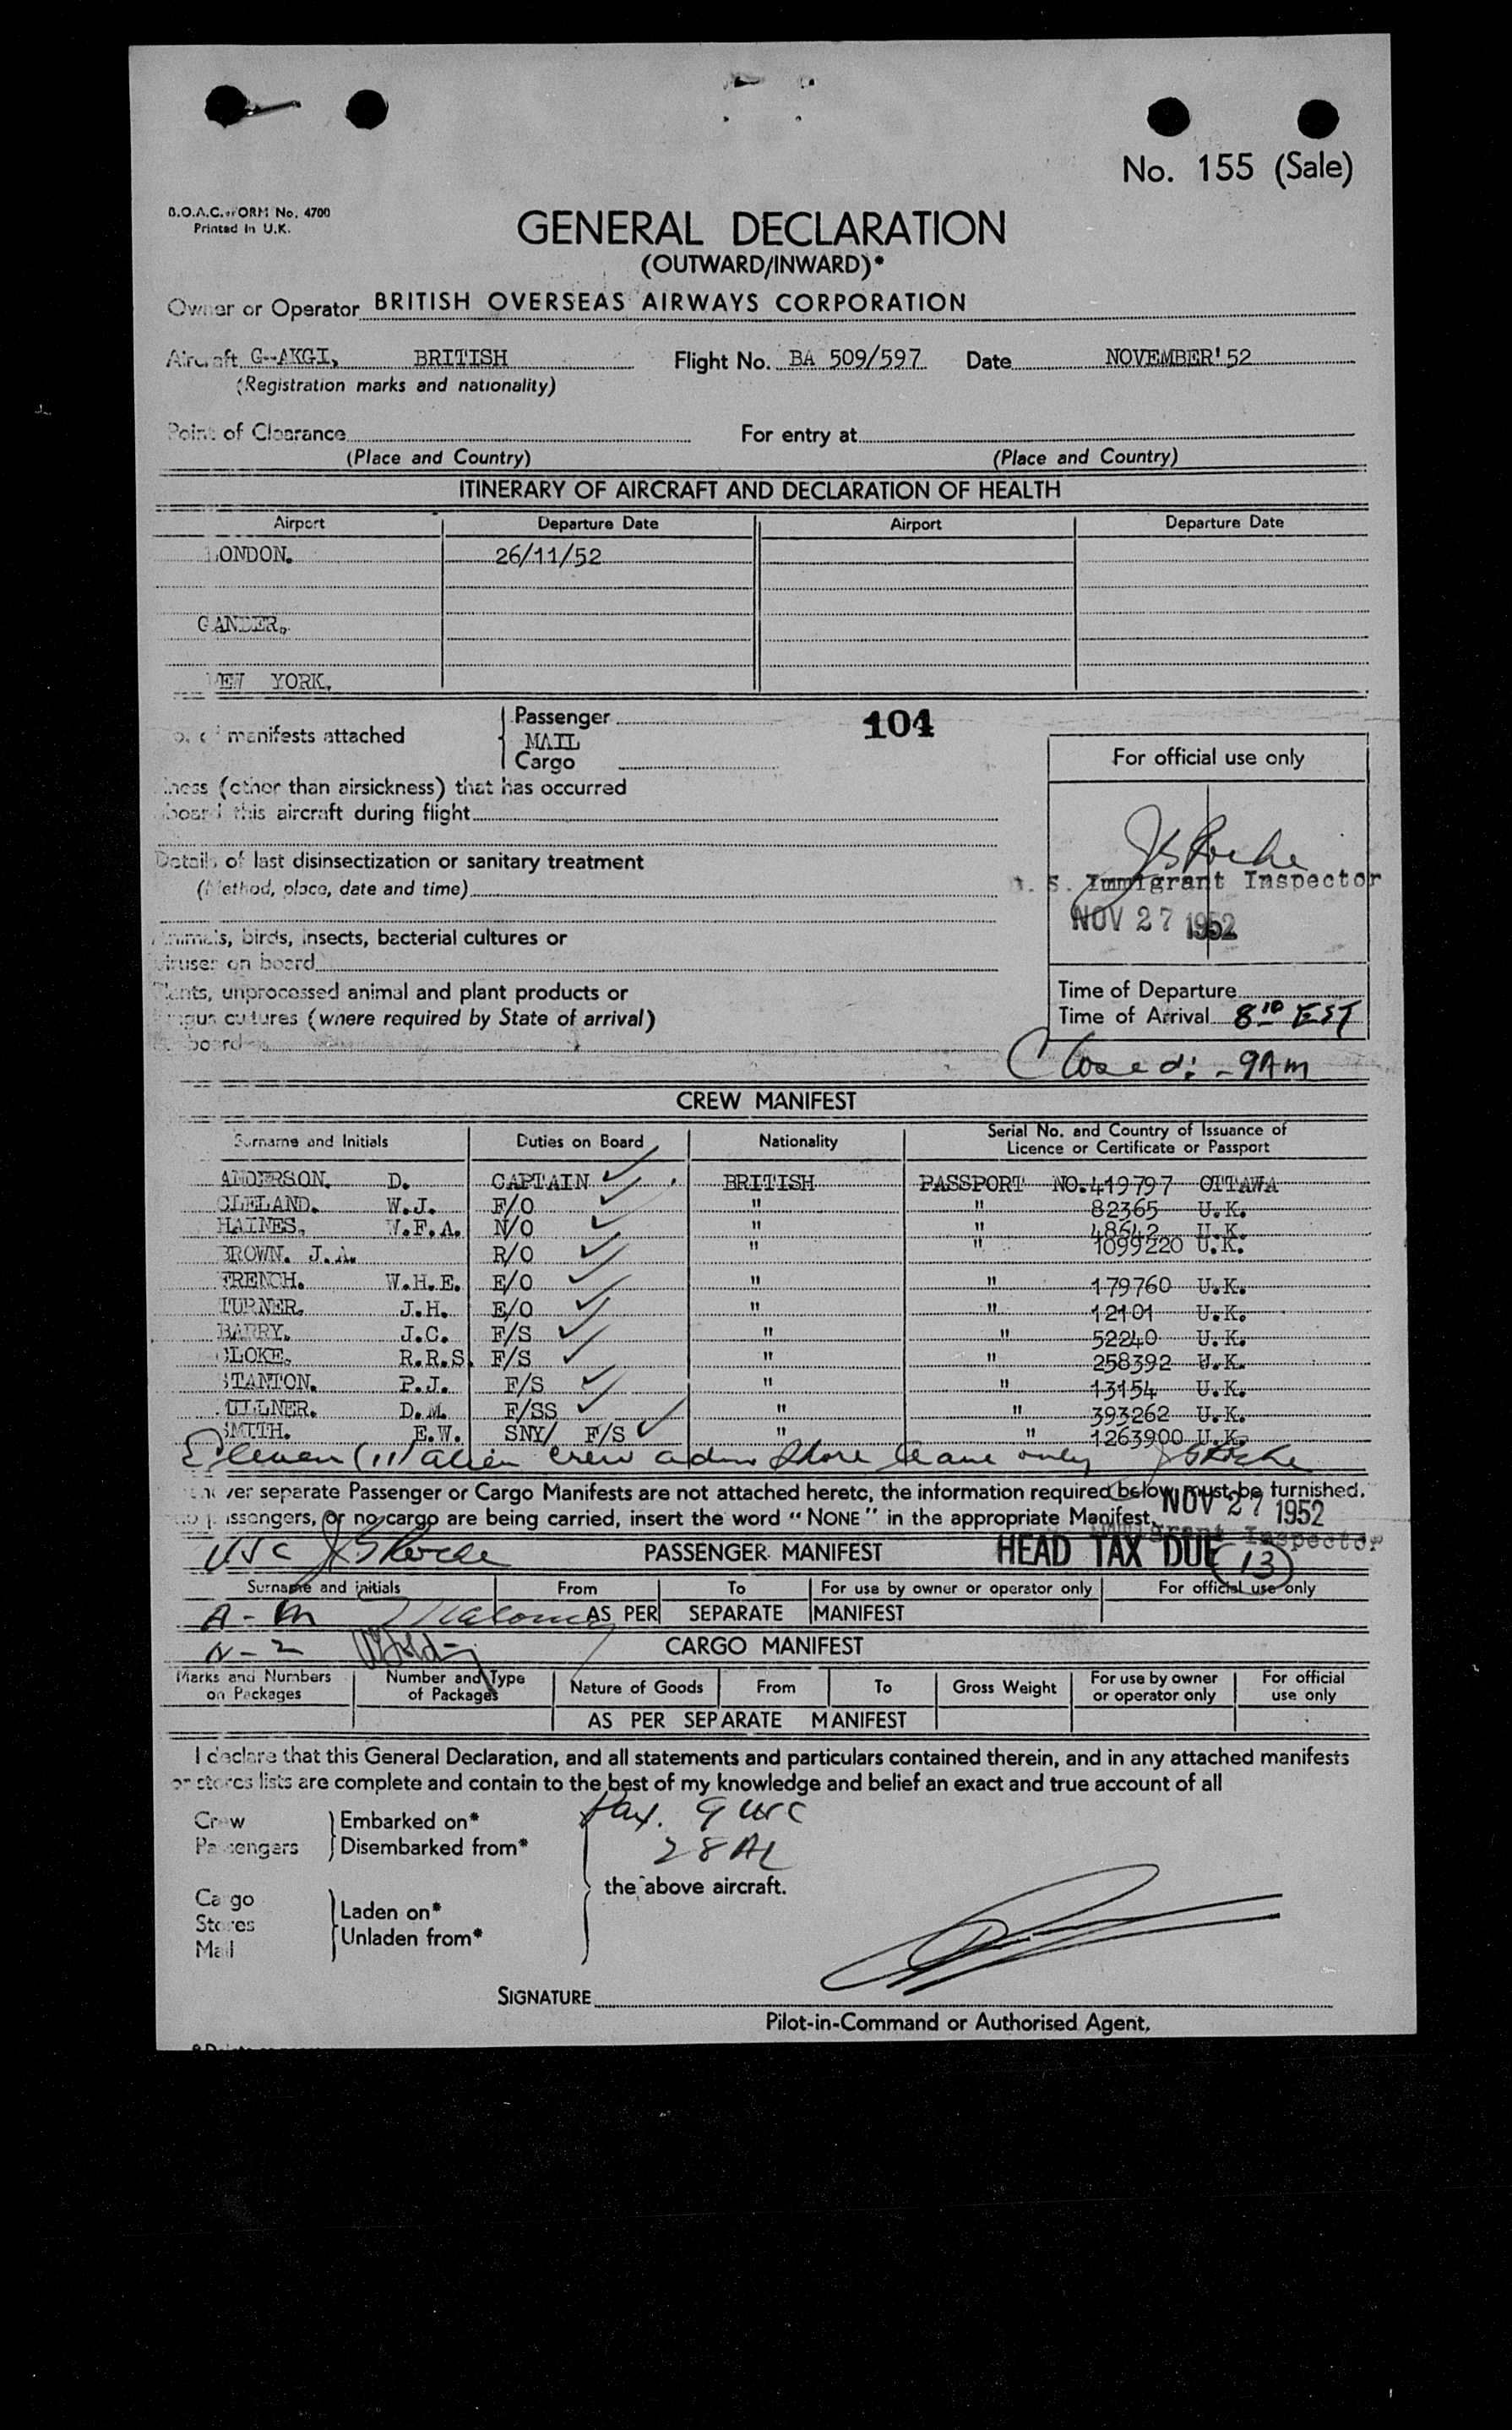 No. 155 (Sale)
B.O.A.C. FORM No. 4700
Printed in U.K.
GENERAL DECLARATION
(OUTWARD/INWARD)*
Owner or Operator BRITISH OVERSEAS AIRWAYS CORPORATION
Aircraft G-AKGI, BRITISH Flight No. BA 509/597 Date NOVEMBER'52
(Registration marks and nationality)
Point of Clearance For entry at
(Place and Country) (Place and Country)
ITINERARY OF AIRCRAFT AND DECLARATION OF HEALTH
Airport Departure Date Airport Departure Date
LONDON. 26/11/52
GANDER,
NEW YORK,
Passenger 104
manifests attached MAIL
Cargo
For official use only
(other than airsickness) that has occurred
this aircraft during flight
Details of last disinsectization or sanitary treatment
(Method, place, date and time)
U. S. Immigrant Inspector
NOV 27 1952
Animals, birds, insects, bacterial cultures or
viruses on board
Plants, unprocessed animal and plant products or
cultures (where required by State of arrival)
board
Time of Departure
Time of Arrival 8 10 EST
Closed: - 9AM
CREW MANIFEST
Surname and Initials Duties on Board Nationality Serial No. and Country of Issuance of
Licence or Certificate or Passport
ANDERSON. D. CAPTAIN BRITISH PASSPORT NO.419797 OTTAWA
CLELAND. W.J. F/O " " 82365 U.K.
HAINES. W.F.A. N/O " " 48642 U.K.
BROWN. J.A. R/O " " 1099220 U.K.
FRENCH. W.H.E. E/O " " 179760 U.K.
TURNER. J.H. E/O " " 12101 U.K.
BARRY. J.C. F/S " " 52240 U.K.
CLOKE. R.R.S. F/S " " 258392 U.K.
STANTON. P.J. F/S " " 13154 U.K.
D.M. F/SS " " 393262 U.K.
SMITH. E.W. SNY/ F/S " " 1263900 U.K.
Eleven (11) alien crew adm shore leave only
separate Passenger or Cargo Manifests are not attached hereto, the information required below must be furnished.
passengers, or no cargo are being carried, insert the word "NONE" in the appropriate Manifest.
NOV 27 1952
Immigrant Inspector
USC PASSENGER MANIFEST HEAD TAX DUE 13
Surname and initials From To For use by owner or operator only For official use only
AS PER SEPARATE MANIFEST
N-2 CARGO MANIFEST
Marks and Numbers on Packages Number and Type of Packages Nature of Goods From To Gross Weight For use by owner or operator only For official use only
AS PER SEPARATE MANIFEST
I declare that this General Declaration, and all statements and particulars contained therein, and in any attached manifests
or stores lists are complete and contain to the best of my knowledge and belief an exact and true account of all
Crew Embarked on* Pax. 9 USC
Passengers Disembarked from* 28 AL
the above aircraft.
Cargo
Stores Laden on*
Mail Unladen from*
SIGNATURE
Pilot-in-Command or Authorised Agent.